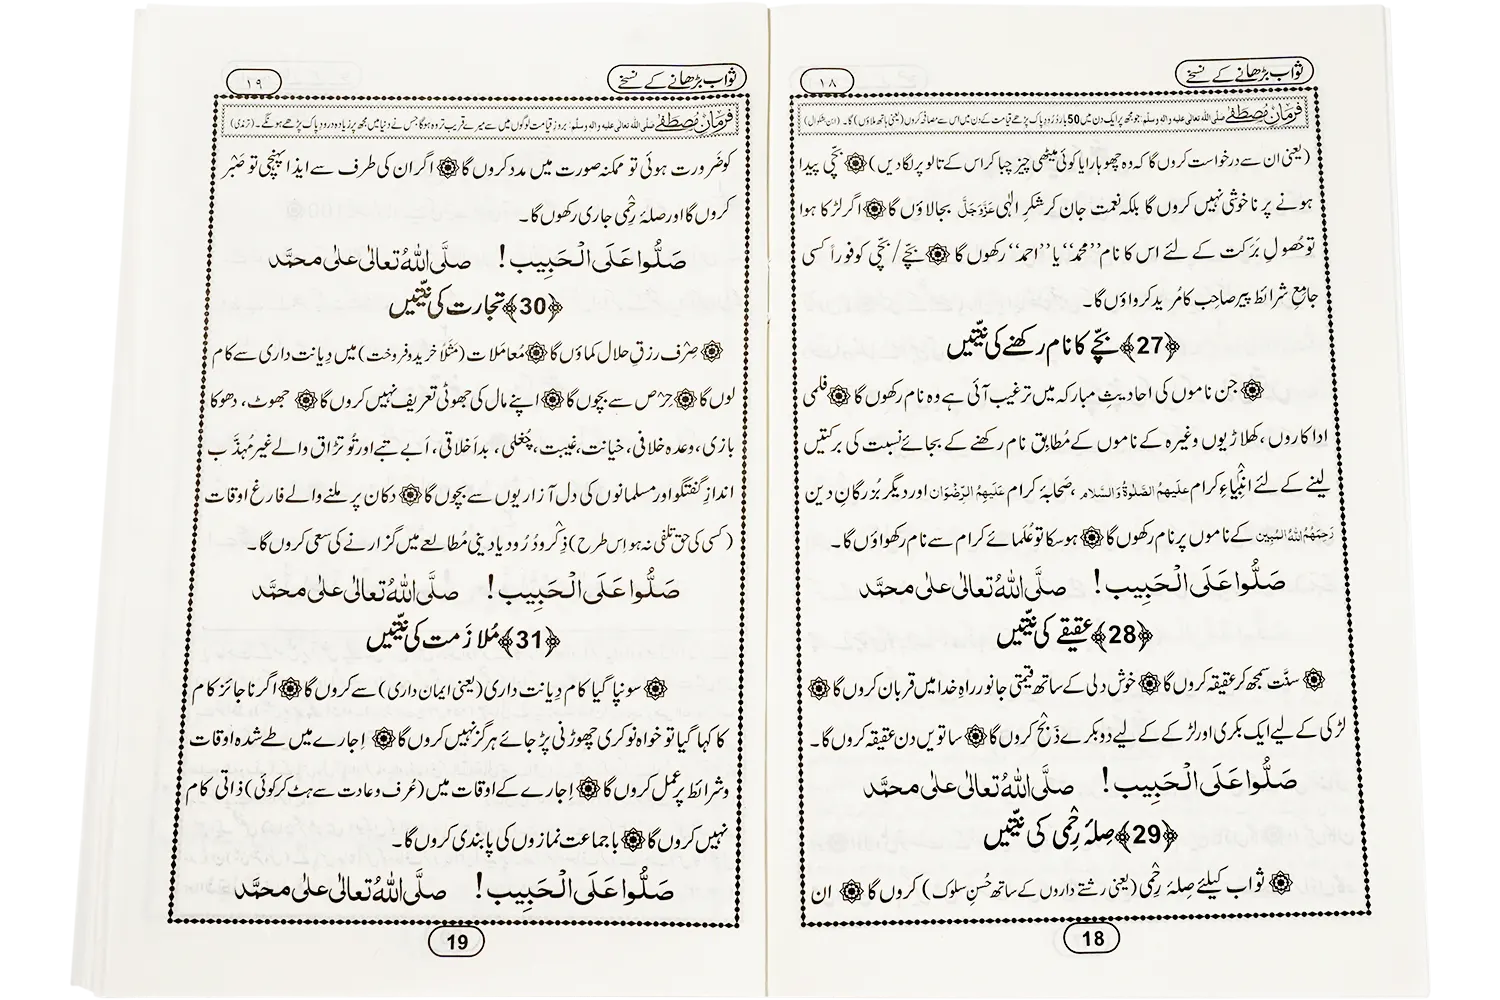 ثواب بڑھانے کے نسخے
١٨
فرمانِ مصطفٰے صلی اللہ تعالیٰ علیہ والہ وسلم: جو مجھ پر ایک دن میں 50 بار دُرود پاک پڑھے قیامت کے دن میں اس سے مصافحہ کروں (یعنی ہاتھ ملاؤں) گا۔ (ابن بشکوال)
(یعنی ان سے درخواست کروں گا کہ وہ چھوہارا یا کوئی میٹھی چیز چبا کر اس کے تالو پر لگا دیں) ۞ بچّی پیدا
ہونے پر ناخوشی نہیں کروں گا بلکہ نعمت جان کر شکرِ الٰہی عَزَّوَجَلَّ بجالاؤں گا ۞ اگر لڑکا ہوا
تو حُصولِ بَرَکت کے لئے اس کا نام ”محمد“ یا ”احمد“ رکھوں گا ۞ بچّے/بچّی کو فوراً کسی
جامِعِ شرائط پیر صاحِب کا مُرید کرواؤں گا۔
﴿27﴾ بچّے کا نام رکھنے کی نیّتیں
۞ جن ناموں کی احادیثِ مبارکہ میں ترغیب آئی ہے وہ نام رکھوں گا ۞ فلمی
اداکاروں، کھلاڑیوں وغیرہ کے ناموں کے مُطابِق نام رکھنے کے بجائے نسبت کی برکتیں
لینے کے لئے انبِیاءِ کرام عَلَیہِمُ الصَّلٰوۃُ وَالسَّلام، صَحابۂ کرام عَلَیہِمُ الرِّضْوَان اور دیگر بُزرگانِ دین
رَحِمَہُمُ اللہُ الْمُبِین کے ناموں پر نام رکھوں گا ۞ ہوسکا تو عُلَمائے کرام سے نام رکھواؤں گا۔
صَلُّوا عَلَی الْحَبِیب! صلَّی اللہُ تعالٰی علٰی محمَّد
﴿28﴾ عقیقے کی نیّتیں
۞ سنّت سمجھ کر عقیقہ کروں گا ۞ خوش دلی کے ساتھ قیمتی جانور راہِ خدا میں قربان کروں گا ۞
لڑکی کے لیے ایک بکری اور لڑکے کے لیے دو بکرے ذَبْح کروں گا ۞ ساتویں دن عقیقہ کروں گا۔
صَلُّوا عَلَی الْحَبِیب! صلَّی اللہُ تعالٰی علٰی محمَّد
﴿29﴾ صِلۂ رَحِمی کی نیّتیں
۞ ثواب کیلئے صِلۂ رَحِمی (یعنی رشتے داروں کے ساتھ حُسنِ سلوک) کروں گا ۞ ان
18
ثواب بڑھانے کے نسخے
١٩
فرمانِ مصطفٰے صلی اللہ تعالیٰ علیہ والہ وسلم: بروزِ قیامت لوگوں میں سے میرے قریب تر وہ ہوگا جس نے دنیا میں مجھ پر زیادہ درود پاک پڑھے ہونگے۔ (ترمذی)
کو ضَرورت ہوئی تو مُمکِنہ صورت میں مدد کروں گا ۞ اگر ان کی طرف سے ایذا پہنچی تو صَبْر
کروں گا اور صلۂ رِحْمی جاری رکھوں گا۔
صَلُّوا عَلَی الْحَبِیب! صلَّی اللہُ تعالٰی علٰی محمَّد
﴿30﴾ تجارت کی نیّتیں
۞ صِرْف رزقِ حلال کماؤں گا ۞ مُعاملات (مَثَلًا خرید وفروخت) میں دِیانت داری سے کام
لوں گا ۞ حِرْص سے بچوں گا ۞ اپنے مال کی جھوٹی تعریف نہیں کروں گا ۞ جھوٹ، دھوکا
بازی، وعدہ خلافی، خیانت، غیبت، چُغلی، بداَخلاقی، اَبے تبے اور تُو تڑاق والے غیر مُہذَّب
اندازِ گفتگو اور مسلمانوں کی دل آزاریوں سے بچوں گا ۞ دکان پر ملنے والے فارغ اوقات
(کسی کی حق تلفی نہ ہو اِس طرح) ذِکْر و دُرُود یا دینی مُطالعے میں گزارنے کی سعی کروں گا۔
صَلُّوا عَلَی الْحَبِیب! صلَّی اللہُ تعالٰی علٰی محمَّد
﴿31﴾ مُلازَمت کی نیّتیں
۞ سونپا گیا کام دِیانت داری (یعنی ایمان داری) سے کروں گا ۞ اگر ناجائز کام
کا کہا گیا تو خواہ نوکری چھوڑنی پڑ جائے ہرگز نہیں کروں گا ۞ اِجارے میں طے شدہ اوقات
وشرائط پر عمل کروں گا ۞ اِجارے کے اوقات میں (عُرف وعادت سے ہٹ کر کوئی) ذاتی کام
نہیں کروں گا ۞ با جماعت نمازوں کی پابندی کروں گا۔
صَلُّوا عَلَی الْحَبِیب! صلَّی اللہُ تعالٰی علٰی محمَّد
19